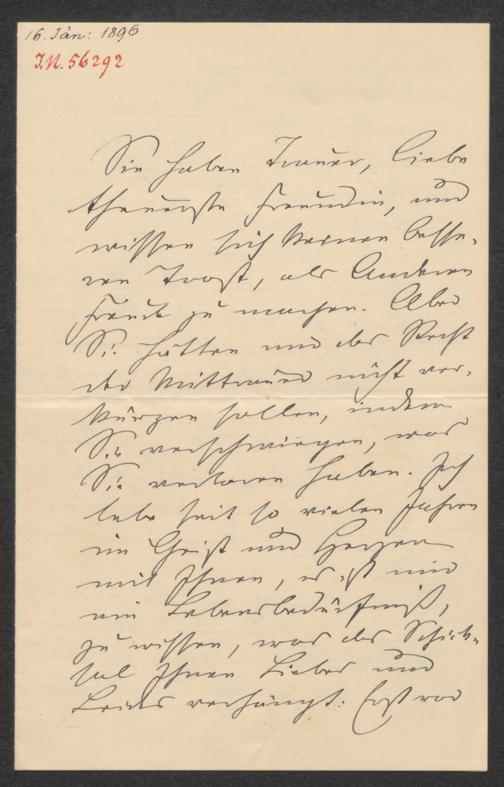 16. Jän: 1896
I.N. 56292
Sie haben Trauer, liebe
theuerste Freundin, und
wissen sich keinen besse-
ren Trost, als Anderen
Freude zu machen. Aber
Sie hätten uns das Recht
der Mittrauer nicht ver-
kürzen sollen, indem
Sie verschwiegen, was
Sie verloren haben. Ich
lebe seit so vielen Jahren
im Geist und Herzen
mit Ihnen, es ist mir
ein Lebensbedürfniß,
zu wissen, was das Schick-
sal Ihnen Liebes und
Leides verhängt. Erst vor